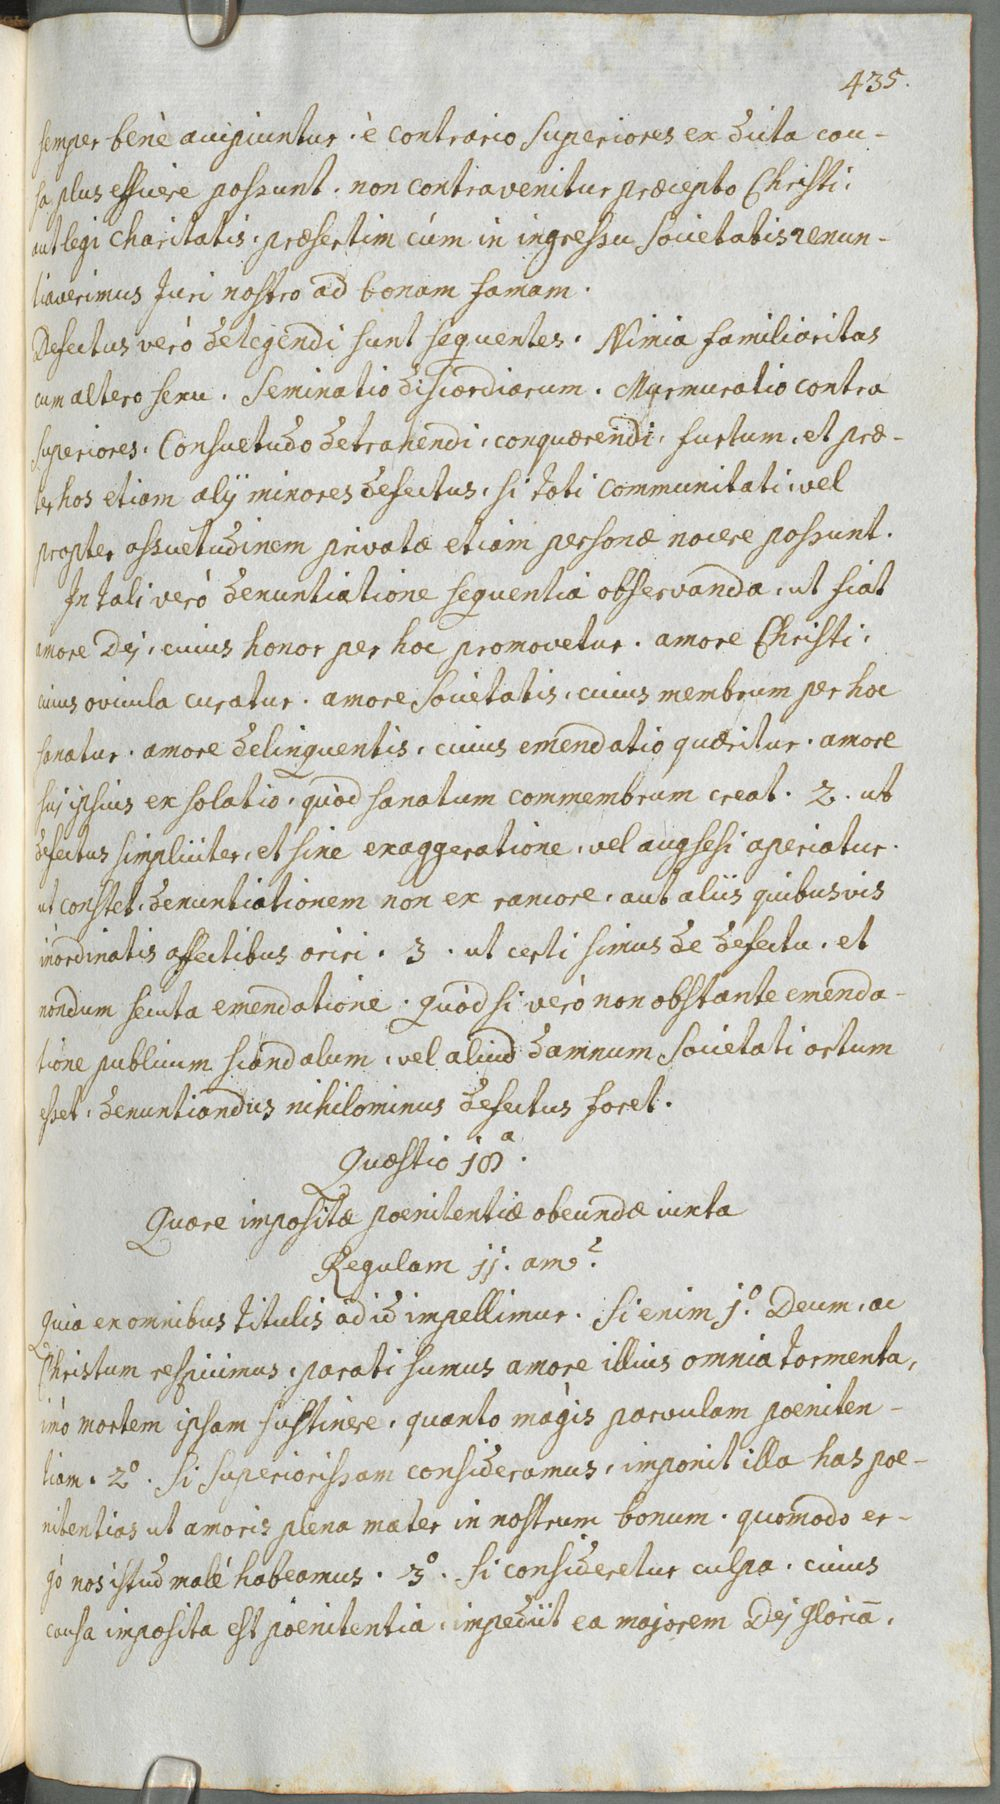 435.
semper benè accipiuntur. è contrario Superiores ex dicta cau-
sa plus efficere possunt. non contravenitur præcepto Christi,
aut legi charitatis. præsertim cúm in ingressu Societatis renun-
tiaverimus Juri nostro ad bonam famam.
Defectus verò detegendi sunt sequentes. Nimia familiaritas
cum altero sexu. Seminatio discordiarum. Murmuratio contra
Superiores. Consuetudo detrahendi, conquærendi, furtum, et præ-
ter hos etiam alij minores defectus, si toti communitati, vel
propter assuetudinem privatæ etiam personæ nocere possunt.
In tali verò denuntiatione sequentia observanda, ut fiat
amore Dej, cuius honor per hoc promovetur. amore Christi,
cuius ovicula curatur. amore Societatis, cuius membrum per hoc
sanatur. amore delinquentis, cuius emendatio quæritur. amore
suj ipsius ex solatio, quòd sanatum commembrum creat. 2. ut
defectus simpliciter, et sine exaggeratione, vel aperiatur.
ut constet, denuntiationem non ex rancore, aut aliis quibusvis
inordinatis affectibus oriri. 3. ut certi simus de defectu, et
nondum secuta emendatione. quòd si verò non obstante emenda-
tione publicum scandalum, vel aliud damnum Societati ortum
esset, denuntiandus nihilominus defectus foret.
Quæstio 18ª.
Quare impositæ poenitentiæ obeundæ iuxta
Regulam 11.
Quia ex omnibus titulis ad id impellimur. Si enim 1º. Deum, ac
Christum respicimus, parati sumus amore illius omnia tormenta,
imò mortem ipsam sustinere, quanto màgis parvulam poeniten-
tiam. 2º. Si Superiorissam consideramus, imponit illa has poe-
nitentias ut amoris plena mater in nostrum bonum. quomodo er-
gò nos istud malé habeamus. 3º. Si consideretur culpa. cuius
causa imposita est poenitentia, impediit ea majorem Dej gloriā.